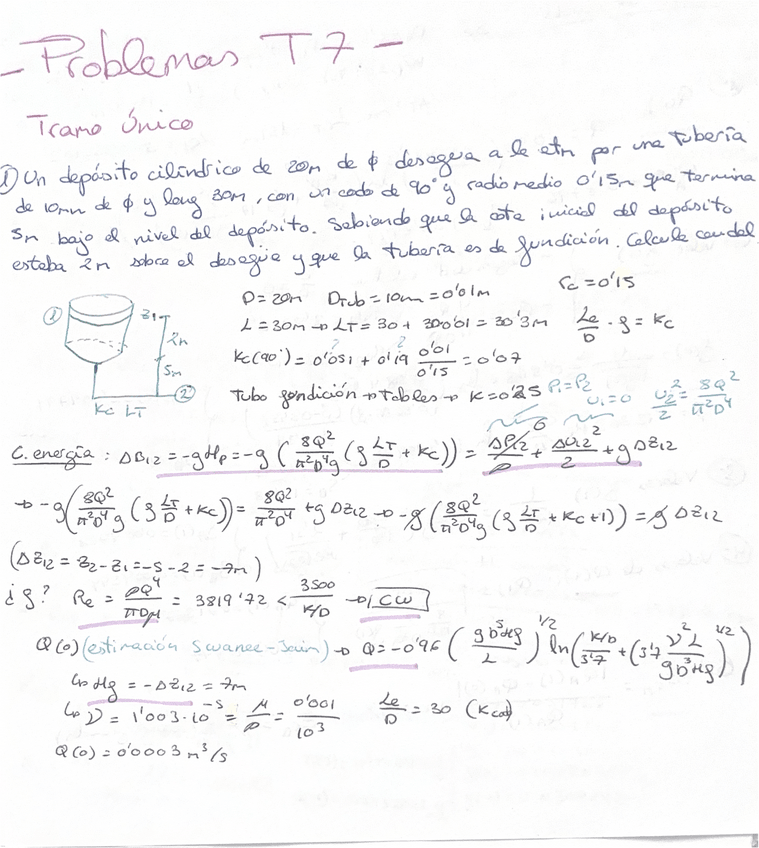 - Problemas T7 -
Tramo Único
① Un depósito cilíndrico de 20m de ϕ desagua a la atm por una tubería
de 10mm de ϕ y long 30m, con un codo de 90° y radio medio 0'15m que termina
5m bajo el nivel del depósito. Sabiendo que la cota inicial del depósito
estaba 2m sobre el desagüe y que la tubería es de fundición. Calcule caudal
① z1 2m 5m ② Kc LT
D = 20m Dtub = 10mm = 0'01m rc = 0'15
L = 30m → LT = 30 + 30·0'01 = 30'3m Le/D · f = Kc
Kc(90°) = 0'051 + 0'19 0'01/0'15 = 0'07
Tubo fundición → tablas → K = 0'25 P1 = P2 U1 = 0 U2²/2 = 8Q²/π²D⁴
C. energía : ΔB12 = -gHp = -g (8Q²/π²D⁴g (f LT/D + Kc)) = ΔP12/ρ 0 + ΔU12²/2 + gΔz12
→ -g(8Q²/π²D⁴g (f LT/D + Kc)) = 8Q²/π²D⁴ + gΔz12 → -g(8Q²/π²D⁴g (f LT/D + Kc + 1)) = gΔz12
(Δz12 = z2 - z1 = -5 - 2 = -7m)
¿f? Re = ρQ4/πDμ = 3819'72 < 3500/K/D → CW
Q(0) (estimación Swanee-Jain) → Q = -0'96 (gD⁵Hf/L)^1/2 ln(K/D/3'7 + (3'17 ν²L/gD³Hf)^1/2)
↳ Hf = -Δz12 = 7m
↳ ν = 1'003·10⁻⁵ = μ/ρ = 0'001/10³ Le/D = 30 (Kcodo)
Q(0) = 0'0003 m³/s